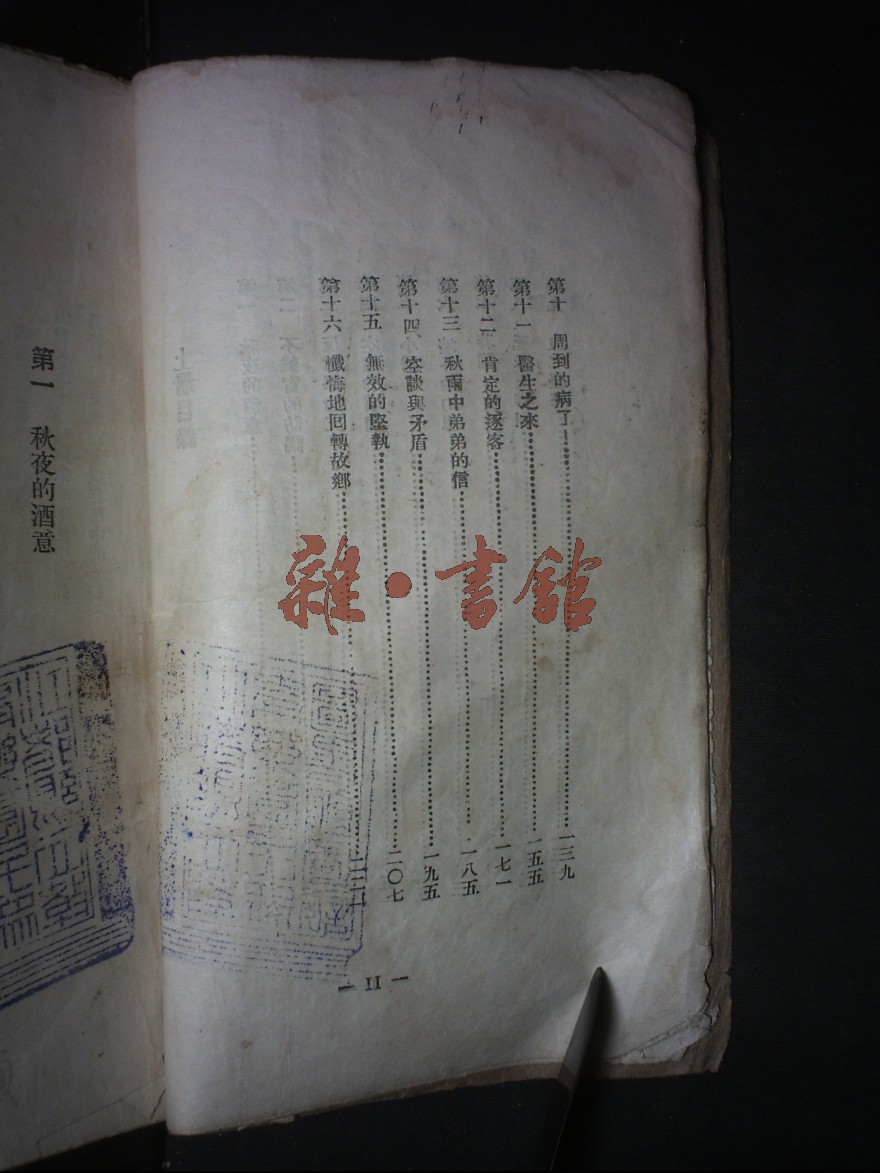 第十　周到的病了——…………一三九
第十一　醫生之來…………一五五
第十二　肯定的逐客…………一七一
第十三　秋雨中弟弟的信…………一八五
第十四　空談與矛盾…………一九五
第十五　無效的堅執…………二〇七
第十六　懺悔地回轉故鄉…………
— II —
第一　秋夜的酒意
雜·書館